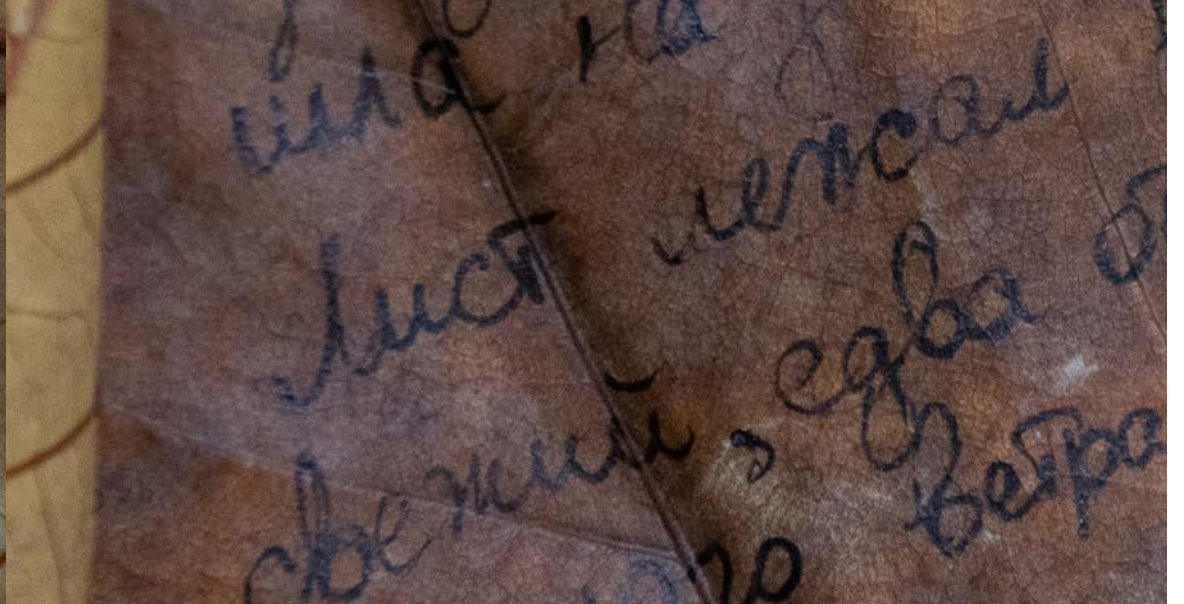 шла на
Лист лежал
свежий, едва
ветра